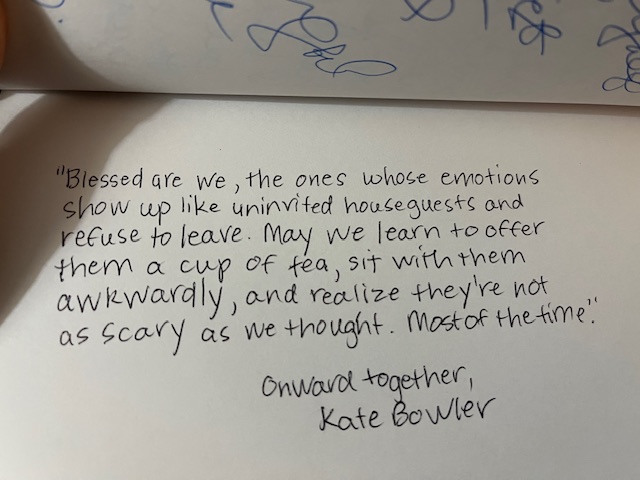 "Blessed are we, the ones whose emotions
show up like uninvited houseguests and
refuse to leave. May we learn to offer
them a cup of tea, sit with them
awkwardly, and realize they're not
as scary as we thought. Most of the time."
Onward together,
Kate Bowler